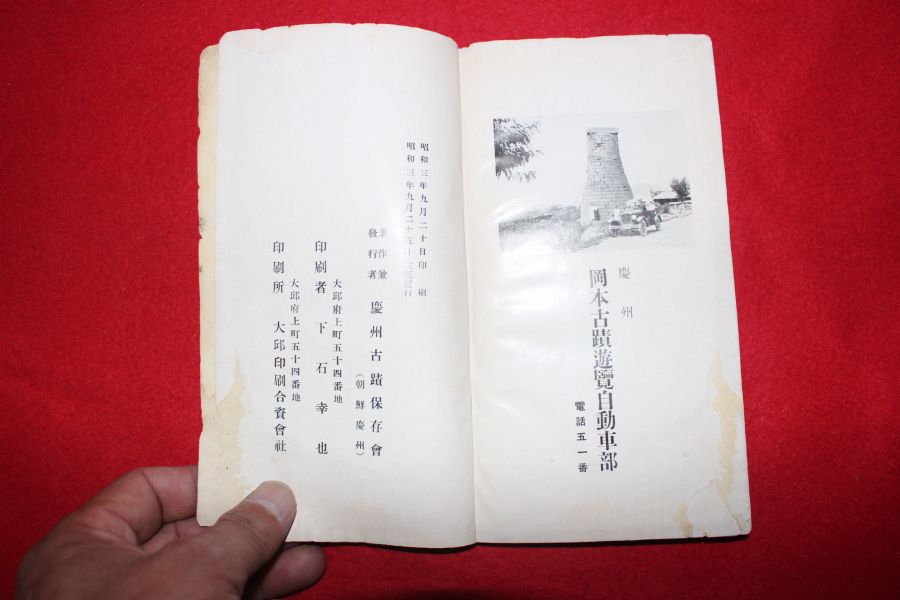 慶州
岡本古蹟遊覽自動車部
電話五一番
昭和三年九月二十日印刷
昭和三年九月二十五日
著作兼
發行者
慶州古蹟保存會
(朝鮮慶州)
大邱府上町五十四番地
印刷者 下石幸也
大邱府上町五十四番地
印刷所 大邱印刷合資會社